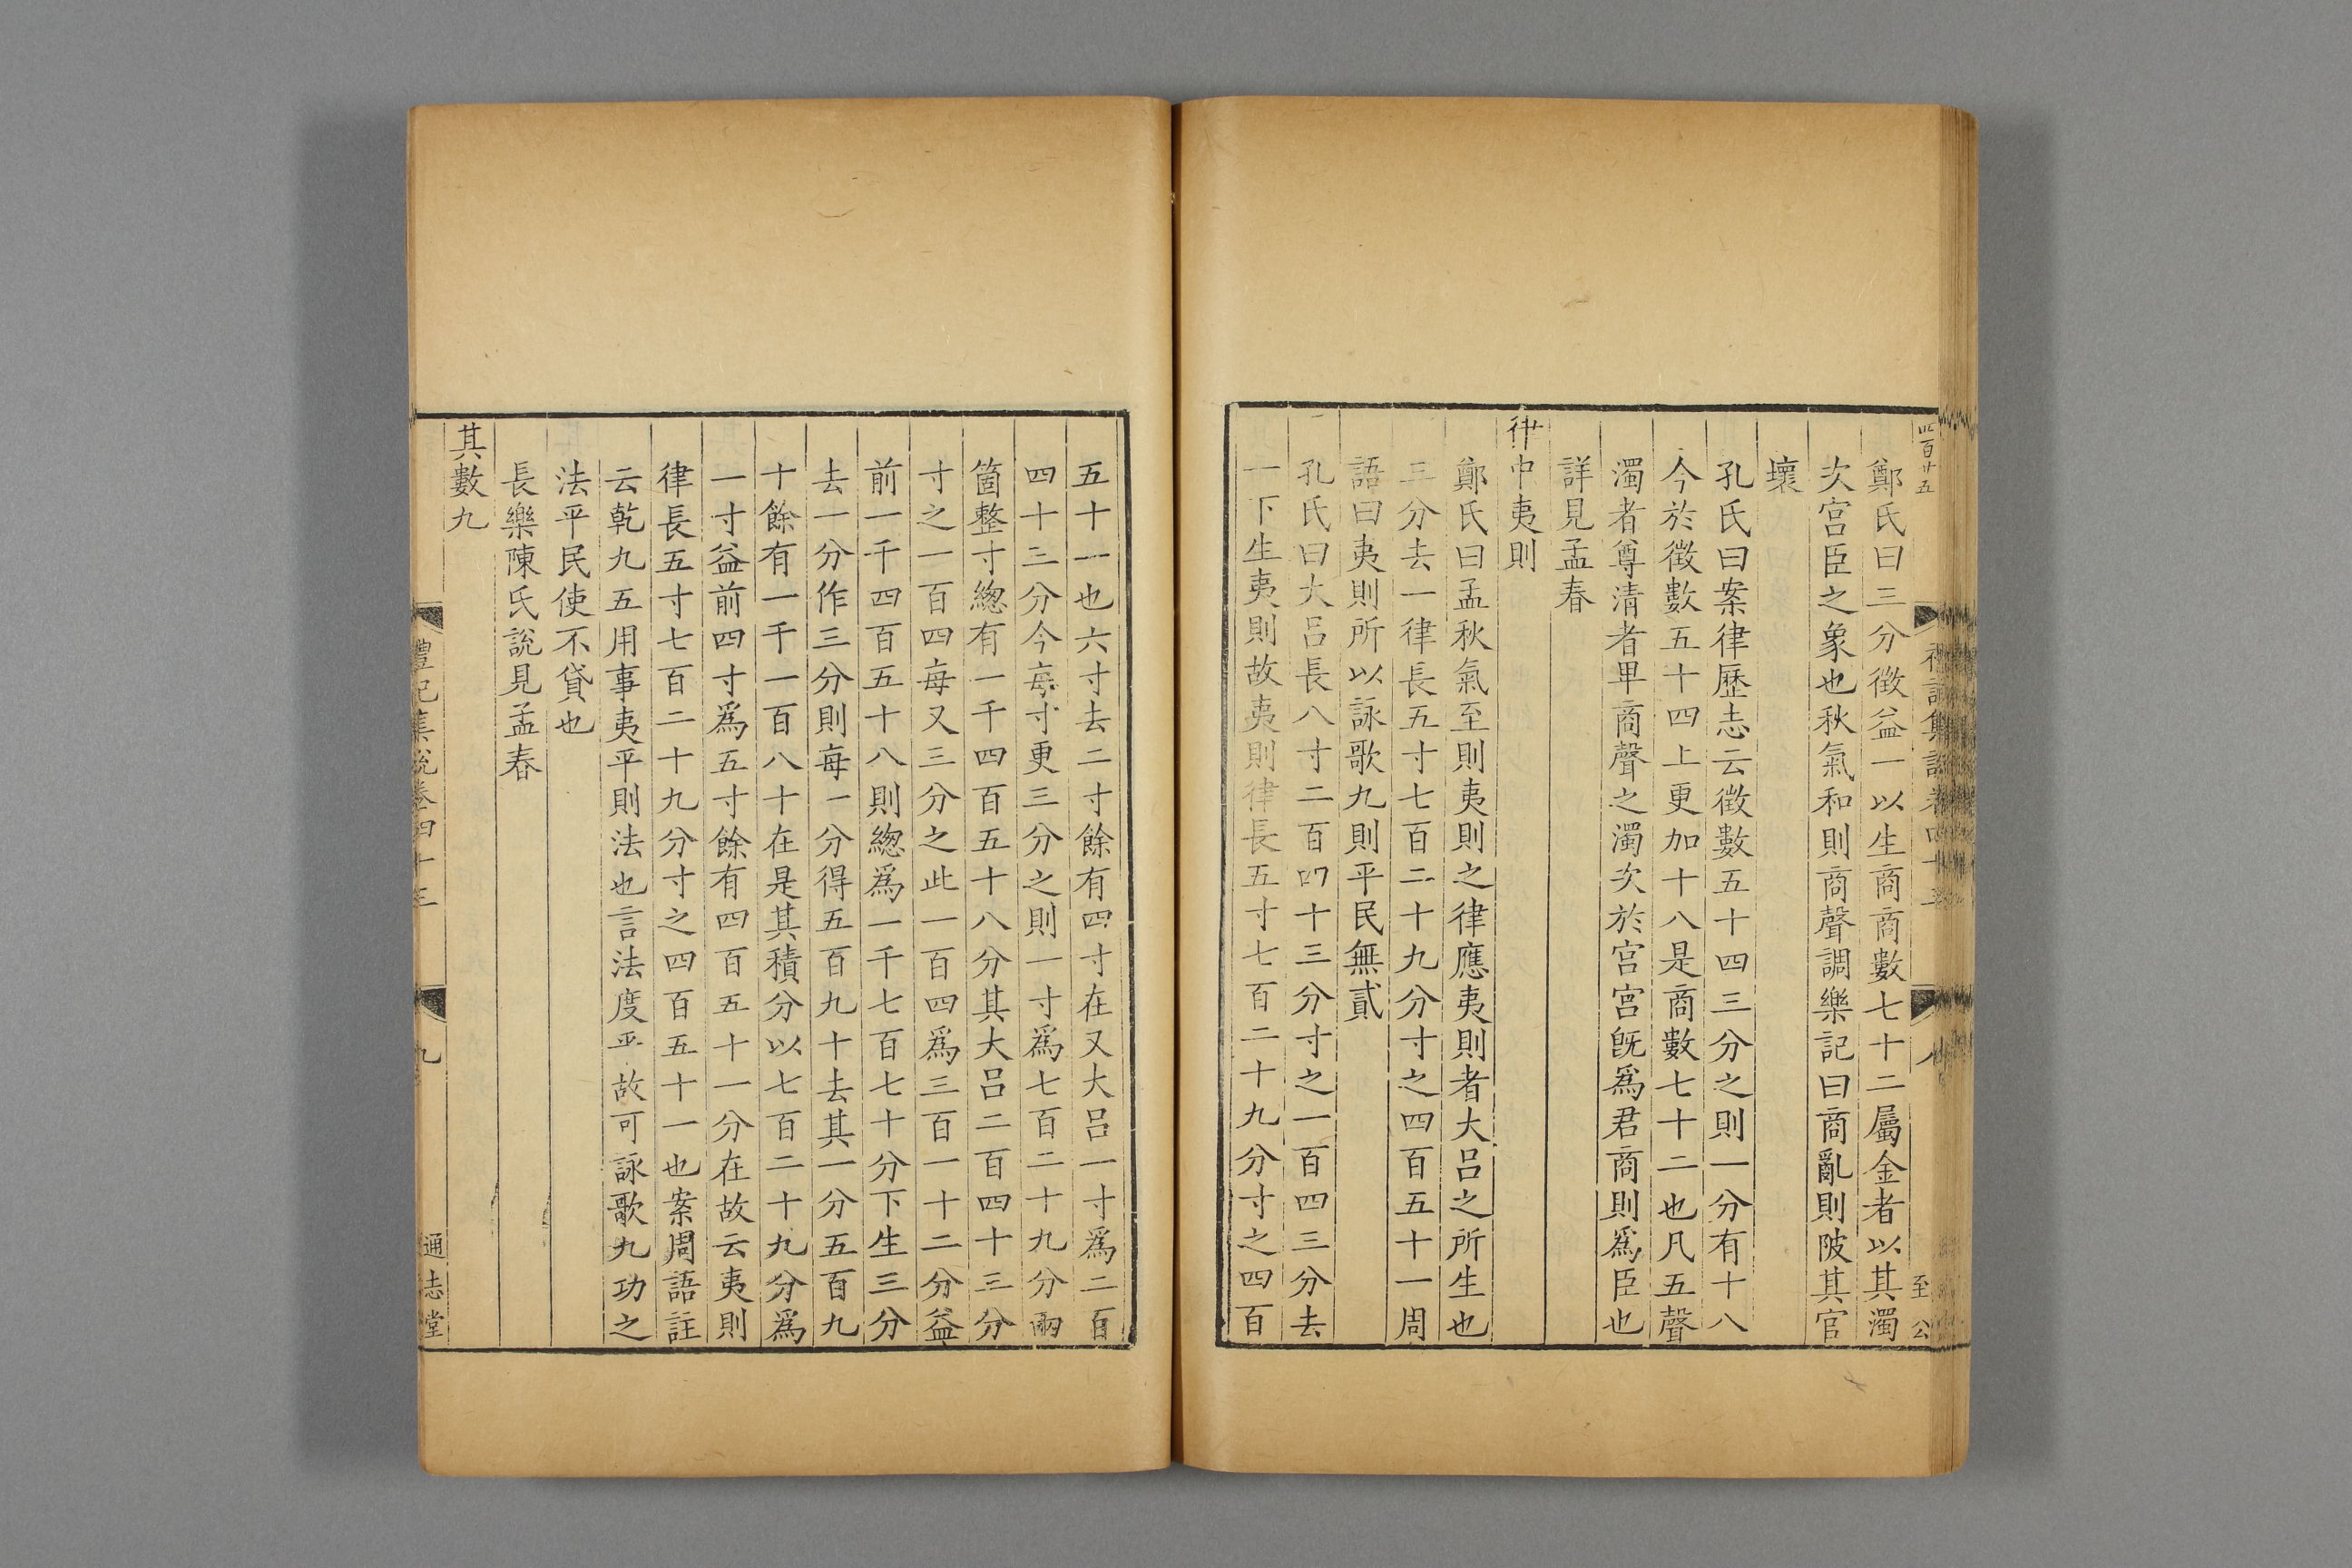 鄭氏曰三分徵益一以生商商數七十二屬金者以其濁
次宫臣之象也秋氣和則商聲調樂記曰商亂則陂其官
壞
孔氏曰案律歷志云徵數五十四三分之則一分有十八
今於徵數五十四上更加十八是商數七十二也凡五聲
濁者尊清者卑商聲之濁次於宫宫旣爲君商則爲臣也
詳見孟春
律中夷則
鄭氏曰孟秋氣至則夷則之律應夷則者大呂之所生也
三分去一律長五寸七百二十九分寸之四百五十一周
語曰夷則所以詠歌九則平民無貳
孔氏曰大呂長八寸二百四十三分寸之一百四三分去
一下生夷則故夷則律長五寸七百二十九分寸之四百
五十一也六寸去二寸餘有四寸在又大呂一寸爲二百
四十三分今每寸更三分之則一寸爲七百二十九分兩
箇整寸緫有一千四百五十八分其大呂二百四十三分
寸之一百四每又三分之此一百四爲三百一十二分益
前一千四百五十八則緫爲一千七百七十分下生三分
去一分作三分則每一分得五百九十去其一分五百九
十餘有一千一百八十在是其積分以七百二十九分爲
一寸益前四寸爲五寸餘有四百五十一分在故云夷則
律長五寸七百二十九分寸之四百五十一也案周語註
云乾九五用事夷平則法也言法度平故可詠歌九功之
法平民使不貸也
長樂陳氏說見孟春
其數九
禮記集說卷四十三
九
通志堂